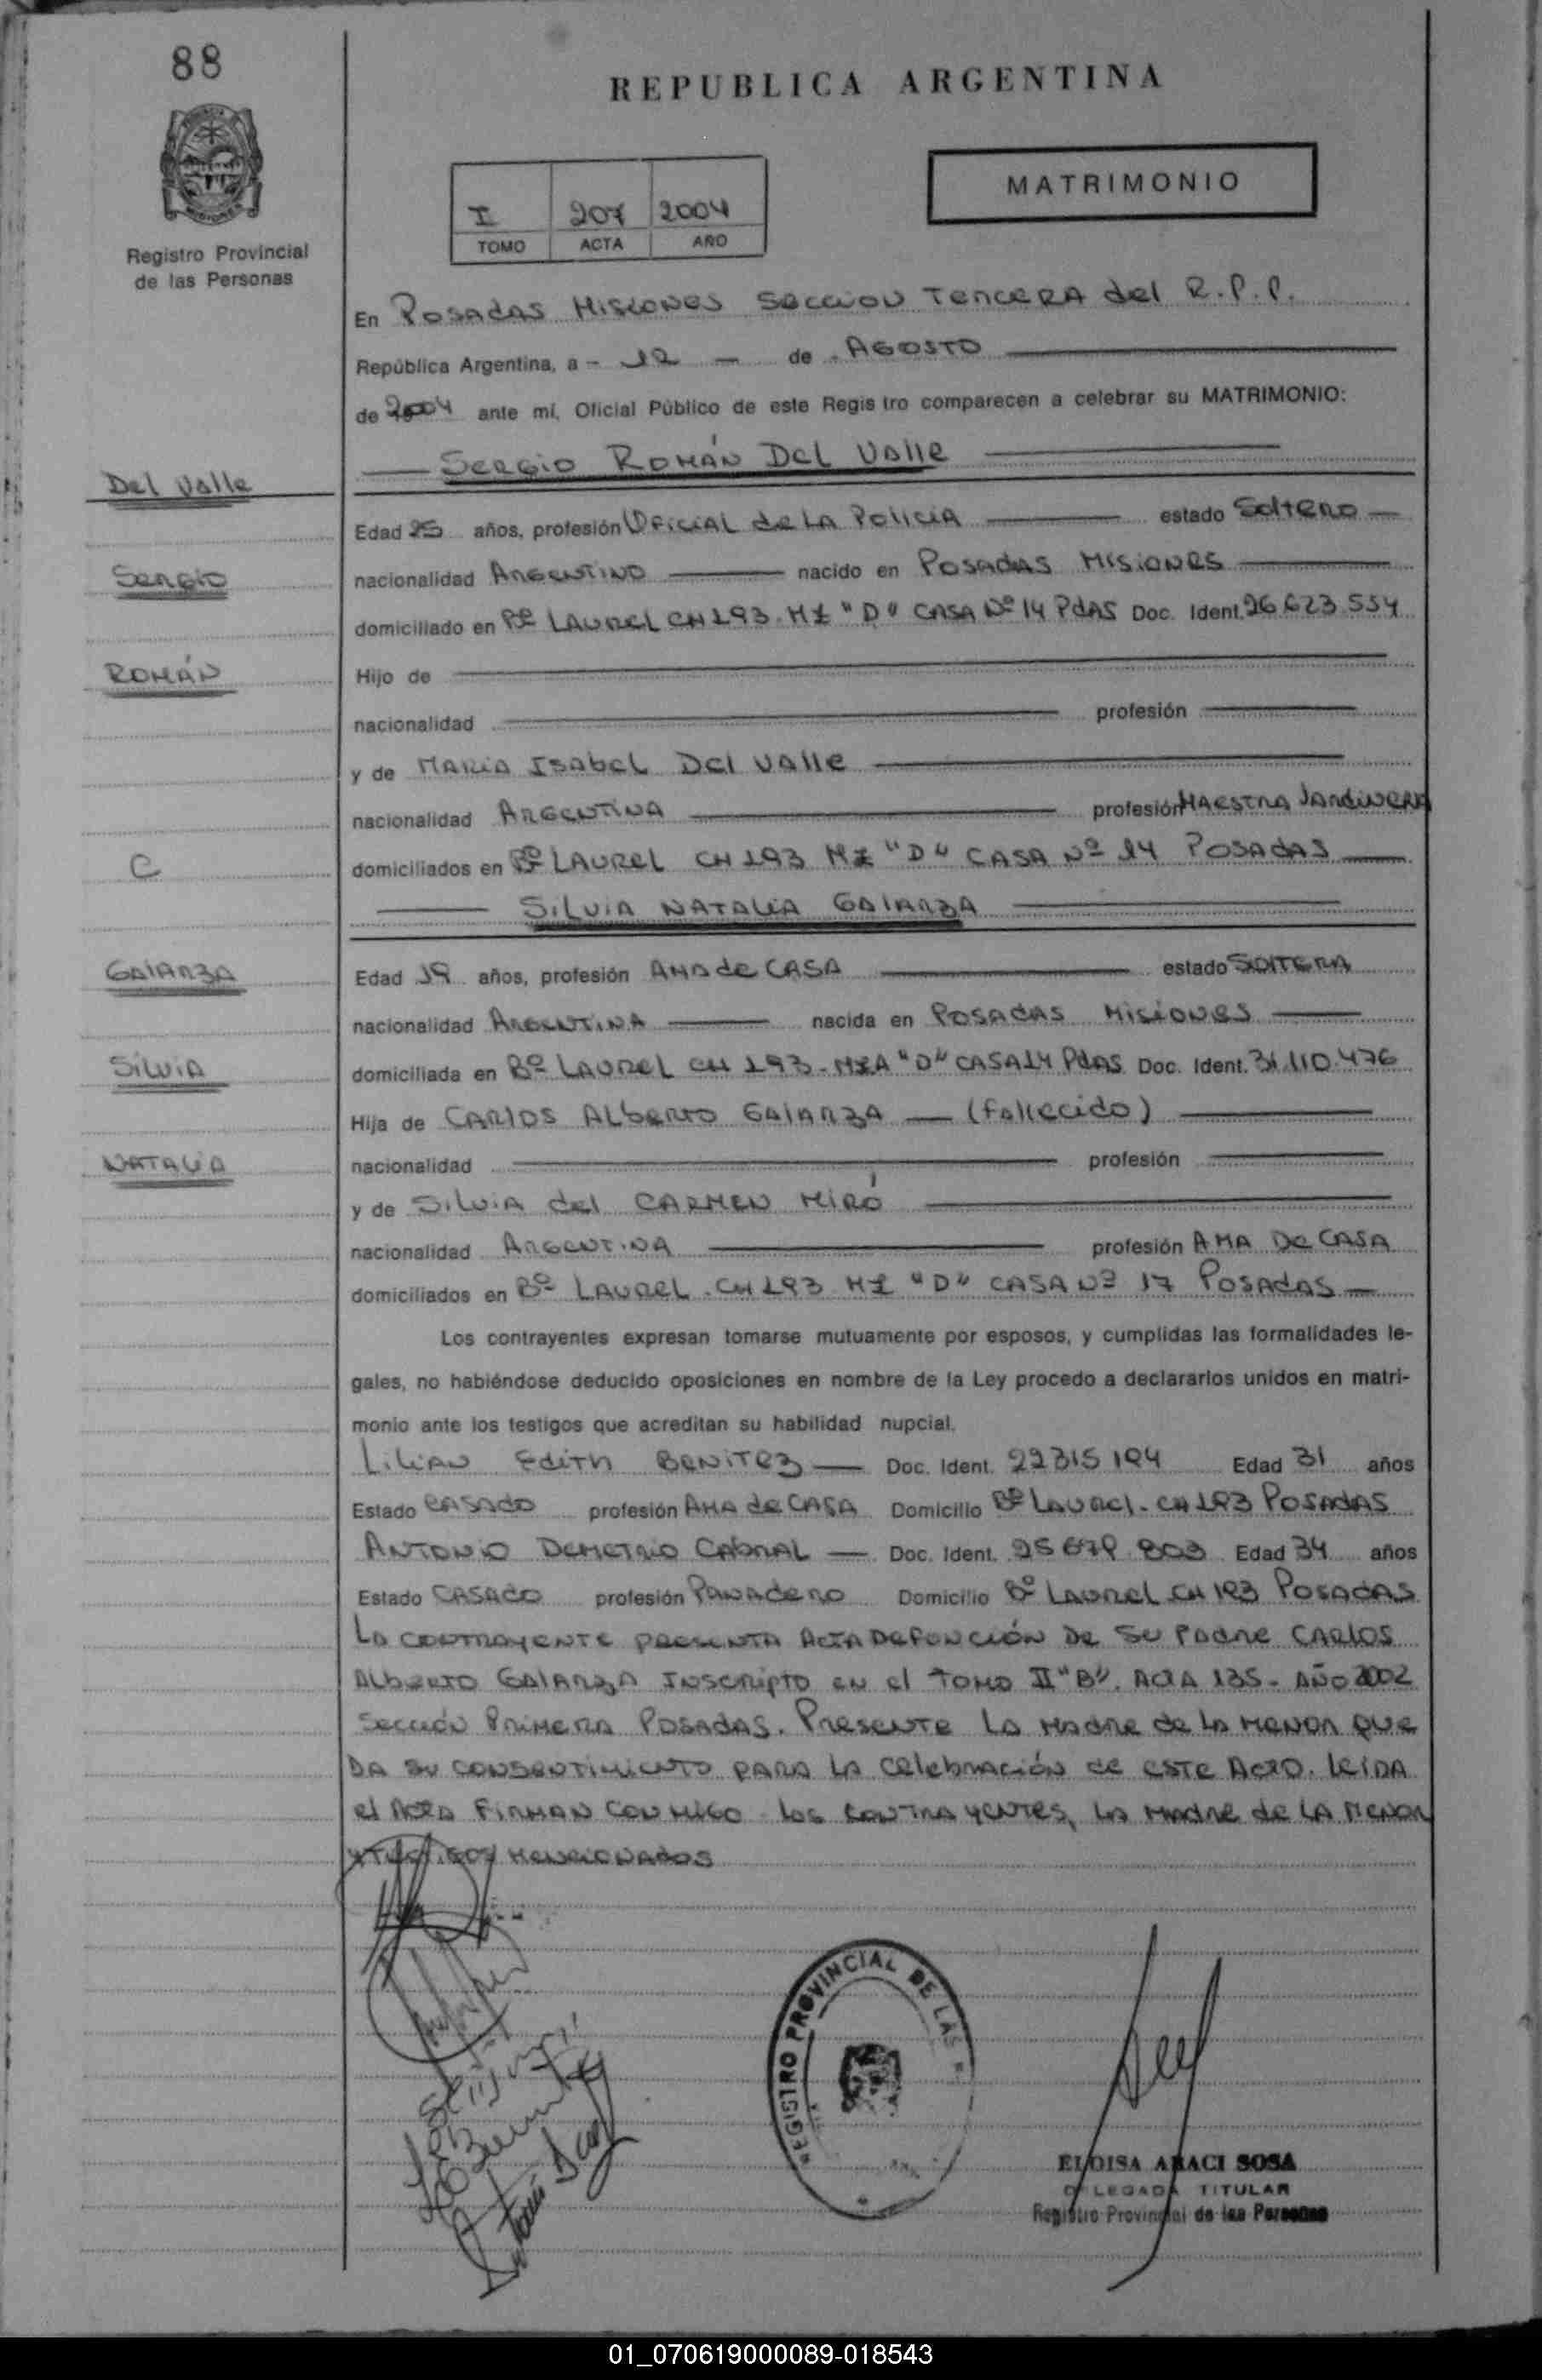 88
REPUBLICA ARGENTINA
MATRIMONIO
I 207 2004
TOMO ACTA AÑO
Registro Provincial
de las Personas
En Posadas Misiones Seccion Tercera del R.P.P.
República Argentina, a - 12 - de AGOSTO
de 2004 ante mí, Oficial Público de este Registro comparecen a celebrar su MATRIMONIO:
Sergio Román Del Valle
Del Valle
Edad 25 años, profesión Oficial de la Policia estado Soltero
Sergio
nacionalidad Argentino nacido en Posadas Misiones
domiciliado en Bº Laurel CH 193 Mz "D" Casa Nº 14 Pdas Doc. Ident. 26.623.554
Román
Hijo de
nacionalidad profesión
y de Maria Isabel Del Valle
nacionalidad Argentina profesión Maestra Jardinera
C
domiciliados en Bº Laurel CH 193 Mz "D" Casa Nº 14 Posadas
Silvia Natalia Galarza
Galarza
Edad 19 años, profesión Ama de Casa estado Soltera
nacionalidad Argentina nacida en Posadas Misiones
Silvia
domiciliada en Bº Laurel CH 193 - Mza "D" Casa 14 Pdas Doc. Ident. 31.110.476
Hija de Carlos Alberto Galarza (Fallecido)
Natalia
nacionalidad profesión
y de Silvia del Carmen Miró
nacionalidad Argentina profesión Ama De Casa
domiciliados en Bº Laurel CH 193 Mz "D" Casa Nº 17 Posadas
Los contrayentes expresan tomarse mutuamente por esposos, y cumplidas las formalidades le-
gales, no habiéndose deducido oposiciones en nombre de la Ley procedo a declararlos unidos en matri-
monio ante los testigos que acreditan su habilidad nupcial.
Lilian Edith Benitez Doc. Ident. 22315194 Edad 31 años
Estado Casado profesión Ama de Casa Domicilio Bº Laurel - CH 193 Posadas
Antonio Demetrio Cabral Doc. Ident. 25 679 803 Edad 34 años
Estado Casado profesión Panadero Domicilio Bº Laurel CH 193 Posadas
La contrayente presenta Acta Defunción de su Padre Carlos
Alberto Galarza Inscripto en el Tomo II "B". Acta 135 - Año 2002
Sección Primera Posadas. Presente la Madre de la Menor que
da su consentimiento para la celebración de este Acto. Leida
el Acta Firman conmigo los contrayentes, la Madre de la Menor
y testigos mencionados
REGISTRO PROVINCIAL DE LAS
ELOISA ARACI SOSA
DELEGADA TITULAR
Registro Provincial de las Personas
01_070619000089-018543